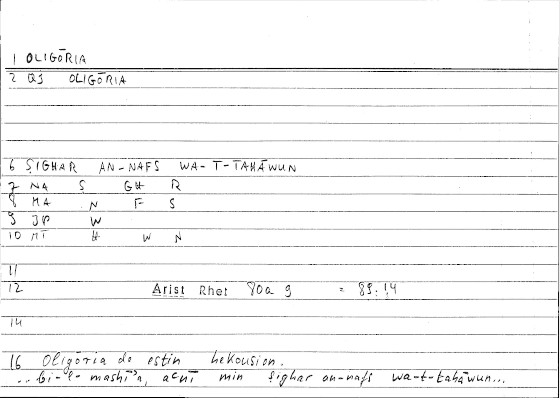 1 OLIGŌRIA
2 QS OLIGŌRIA
6 ṢIGHAR AN-NAFS WA-T-TAHĀWUN
7 NA Ṣ GH R
8 MA N F S
9 JP W
10 MT H W N
11
12 Arist Rhet 80a 9 = 89.14
14
16 Oligōria de estin hekousion.
..bi-l-mashī'a, aʿnī min ṣighar an-nafs wa-t-tahāwun...